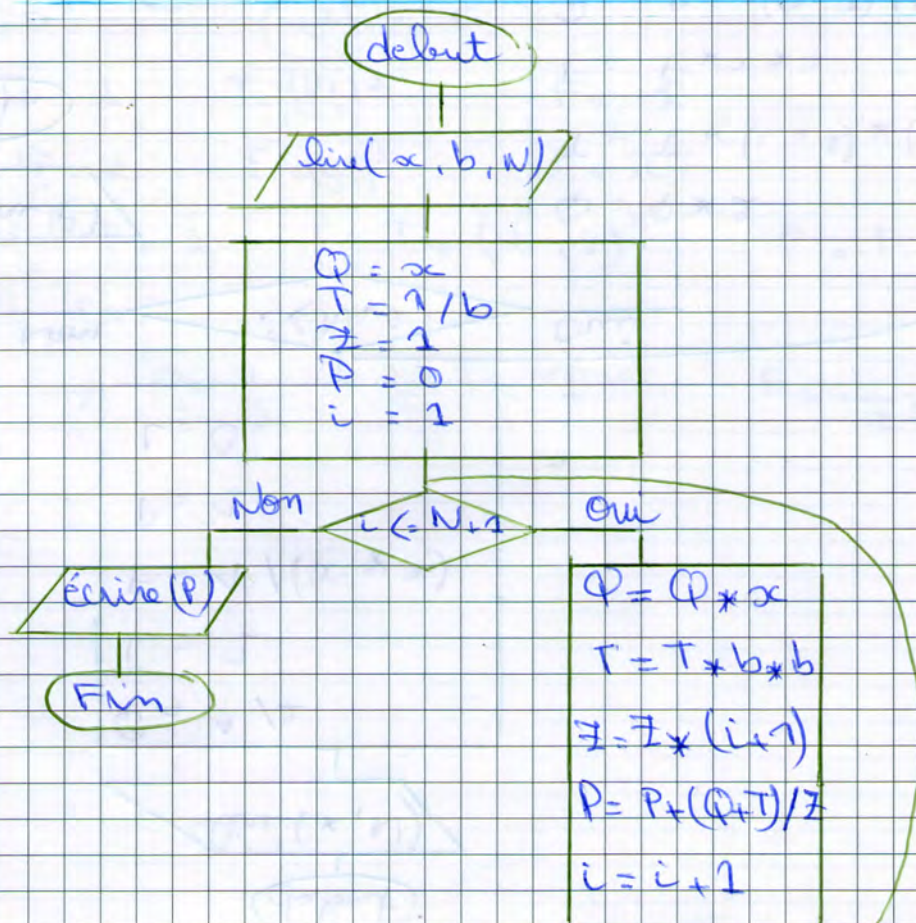 debut
lire(x, b, N)
Q = x
T = 1/b
Z = 1
P = 0
i = 1
Non
i <= N+1
oui
écrire (P)
Fin
Q = Q * x
T = T * b * b
Z = Z * (i+1)
P = P+(Q+T)/Z
i = i + 1